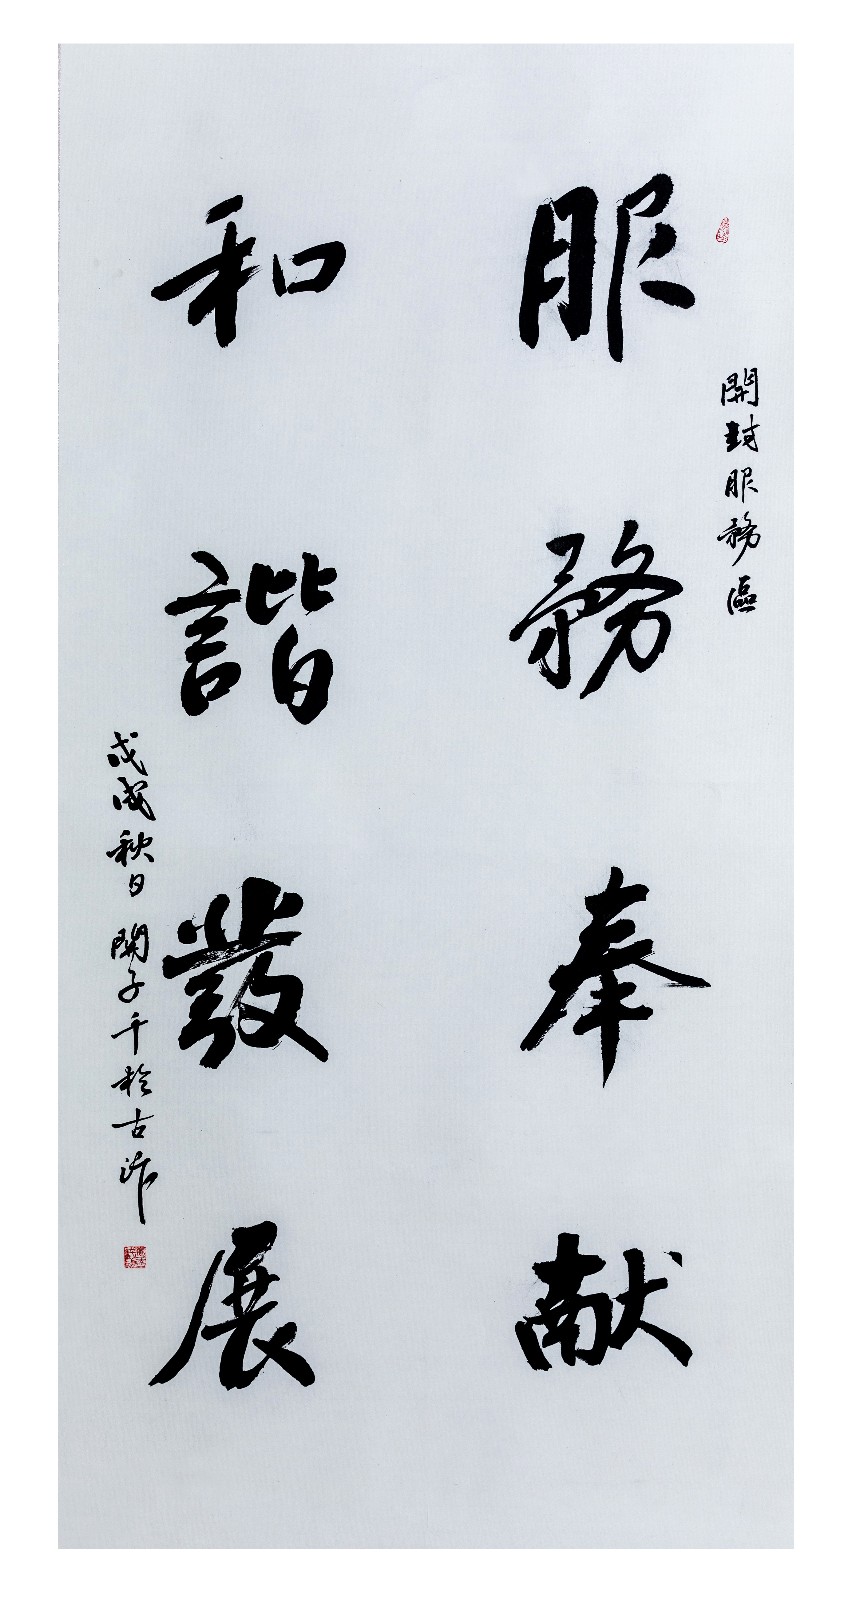 開封服務區
服務奉献
和諧發展
戊戌秋日開子千於古汴